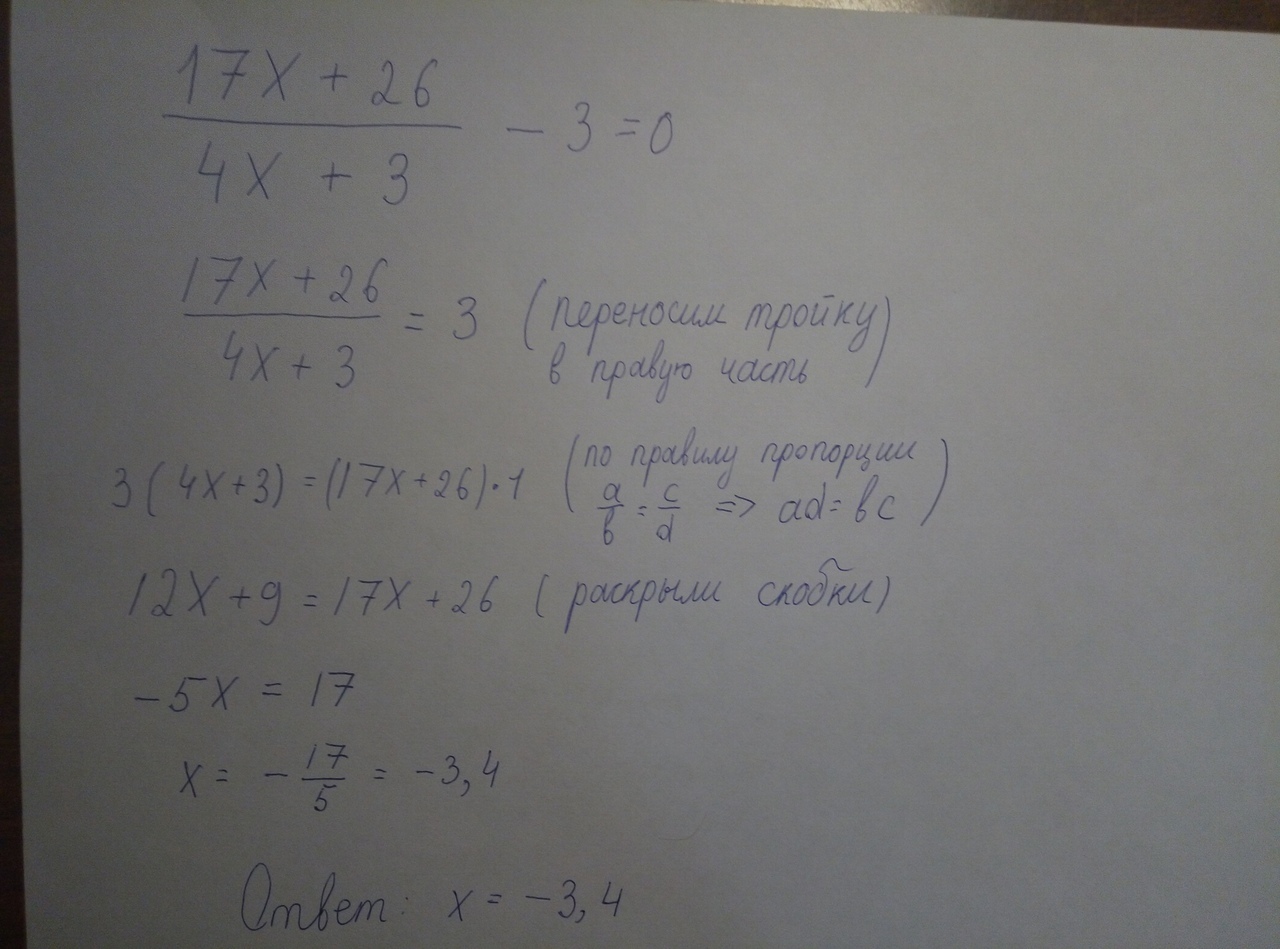 17x + 26
4x + 3
- 3 = 0
17x + 26
4x + 3
= 3 (переносим тройку
в правую часть)
3(4x+3) = (17x+26)·1 (по правилу пропорции
a/в = c/d => ad = вc)
12x + 9 = 17x + 26 (раскрыли скобки)
-5x = 17
x = - 17/5 = -3,4
Ответ: x = -3,4